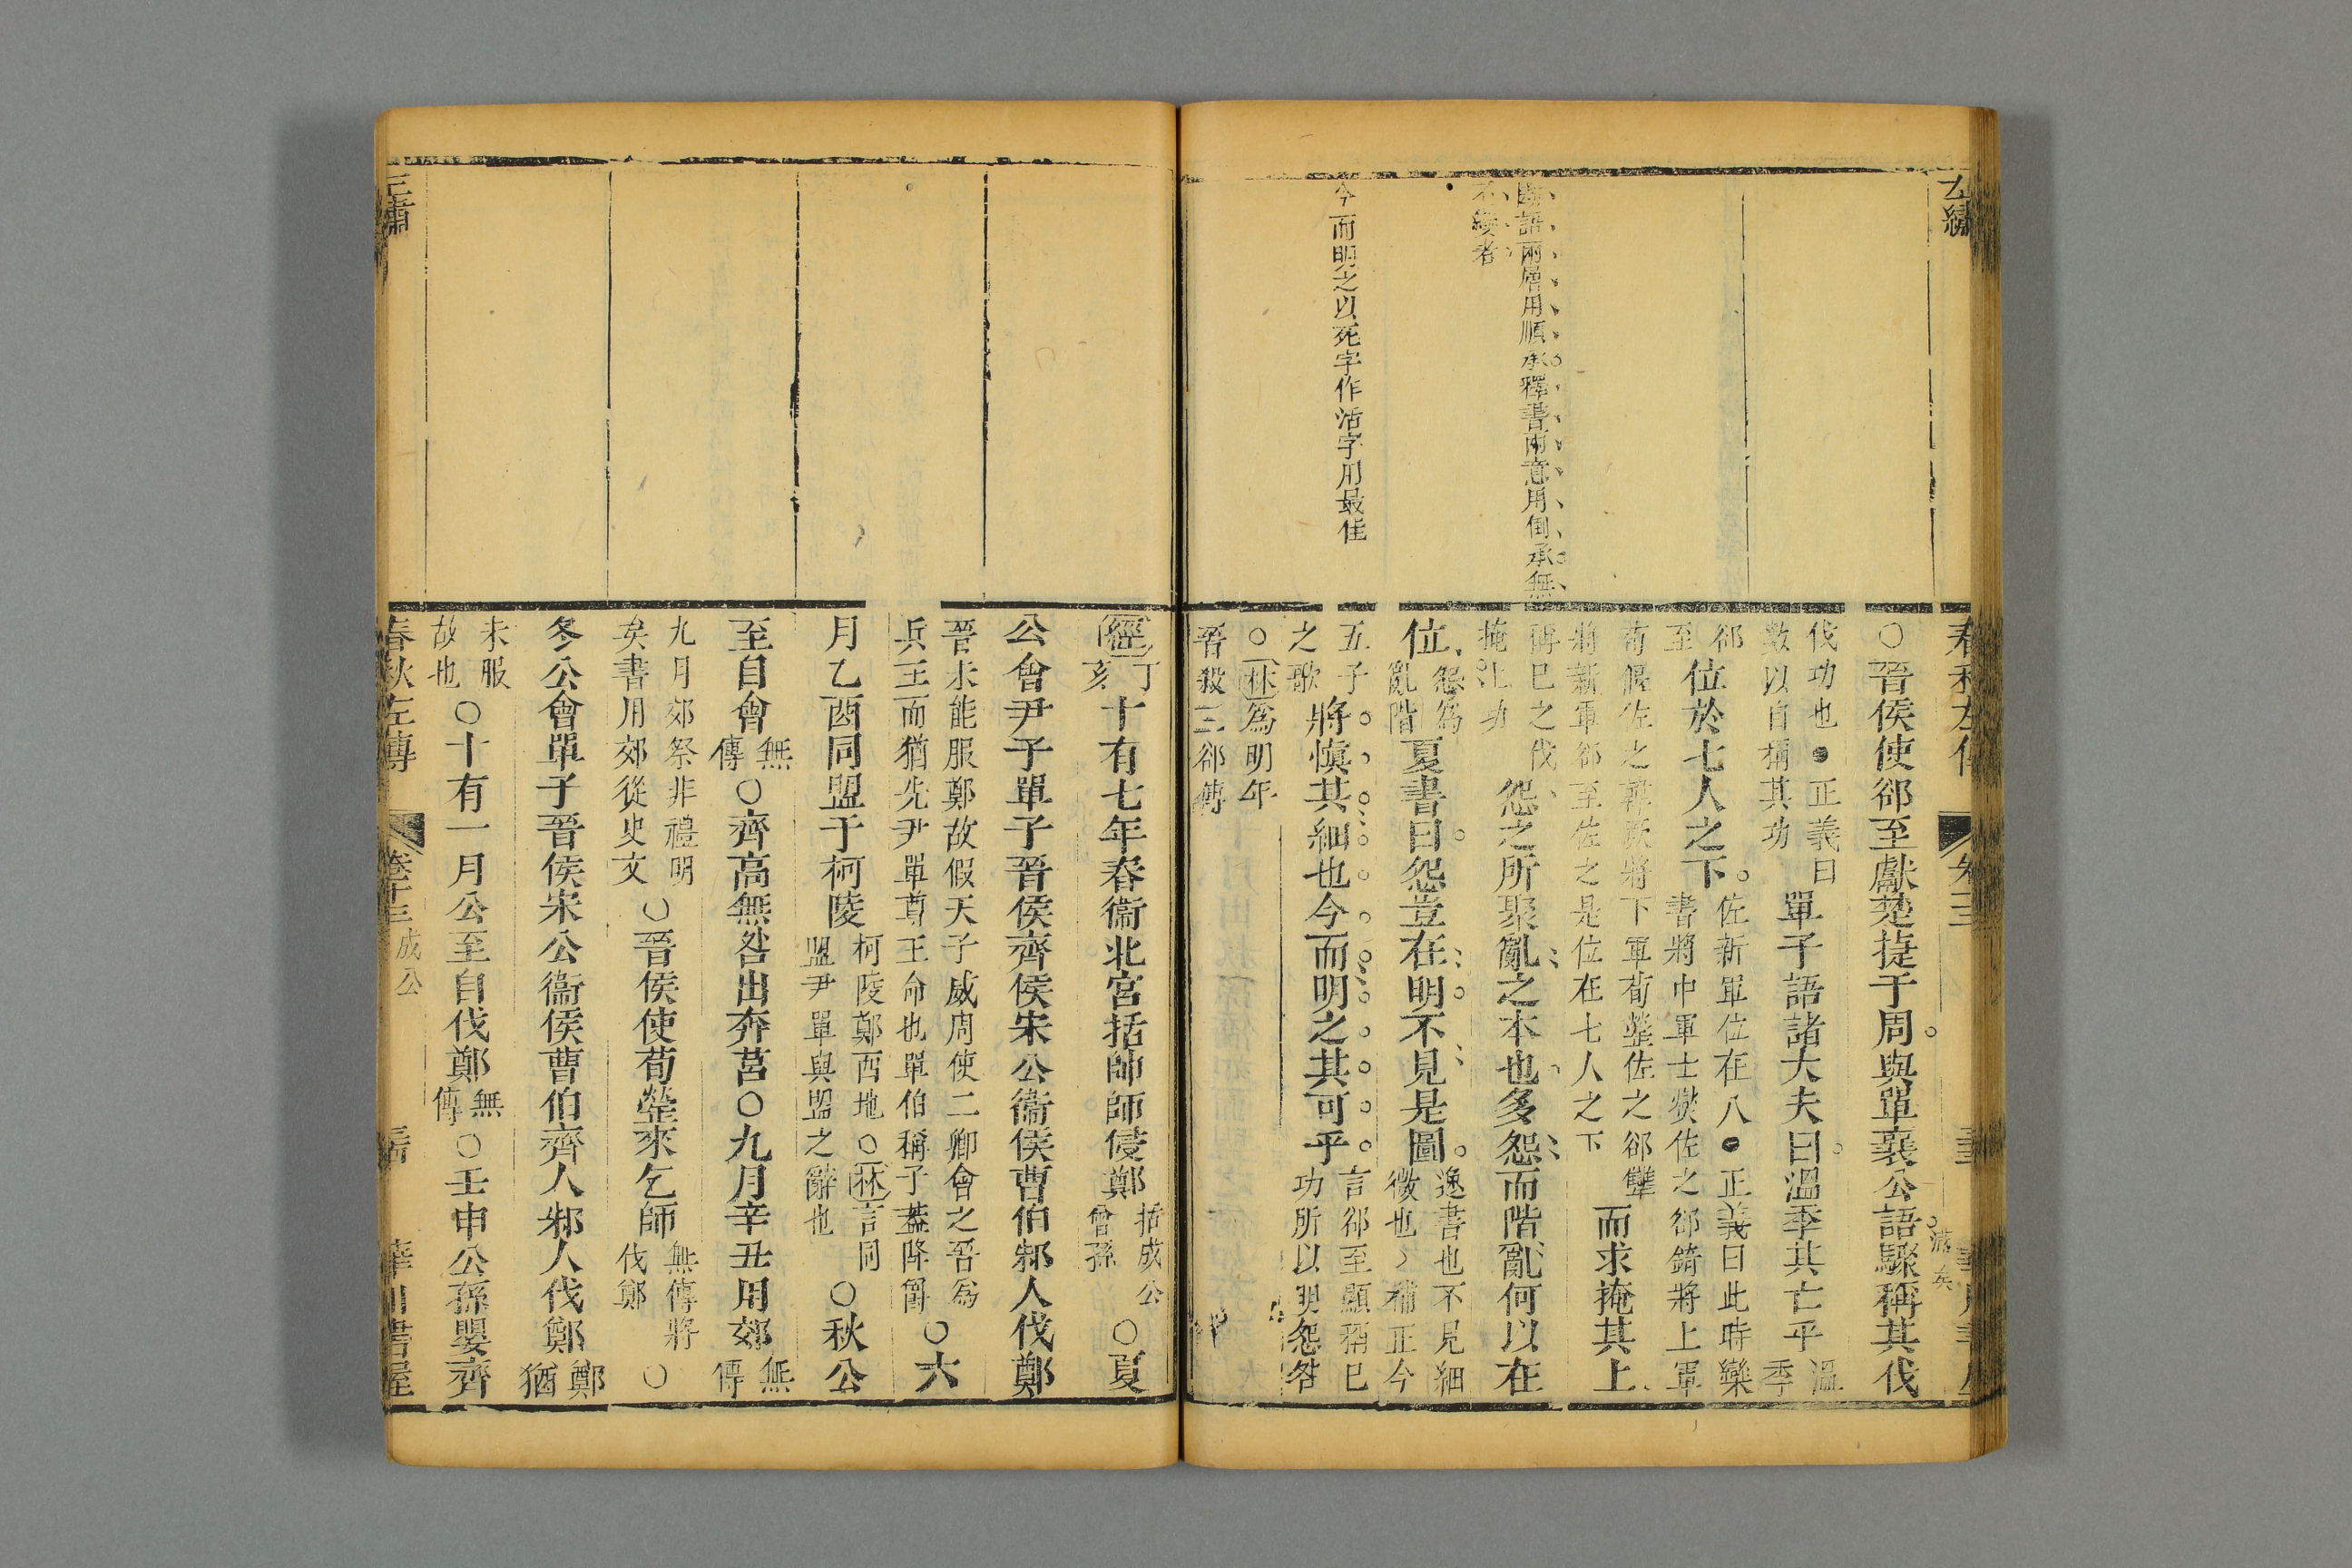 左繡
春秋左傳
斷語兩層用順承釋書兩意用倒承無
不變者
今而明之以死字作活字用最佳
○晉侯使郤至獻楚捷于周與單襄公語驟稱其伐
伐功也●正義曰
數以自稱其功
單子語諸大夫曰溫季其亡乎
溫
季
郤
至
位於七人之下
佐新軍位在八●正義曰此時欒
書將中軍士燮佐之郤錡將上軍
荀偃佐之韓厥將下軍荀罃佐之郤犨
將新軍郤至佐之是位在七人之下
而求掩其上
稱已之伐
掩上功
怨之所聚亂之本也多怨而階亂何以在
位
怨為
亂階
夏書曰怨豈在明不見是圖
逸書也不見細
微也 補正今
五子
之歌
將慎其細也今而明之其可乎
言郤至顯稱已
功所以明怨咎
○林為明年
晉殺三郤傳
經
丁
亥
十有七年春衞北宮括帥師侵鄭
括成公
曾孫
○夏
公會尹子單子晉侯齊侯宋公衞侯曹伯邾人伐鄭
晉未能服鄭故假天子威周使二卿會之晉為
兵主而猶先尹單尊王命也單伯稱子蓋降爵
○六
月乙酉同盟于柯陵
柯陵鄭西地○林言同
盟尹單與盟之辭也
○秋公
至自會
無
傳
○齊高無咎出奔莒○九月辛丑用郊
無
傳
九月郊祭非禮明
矣書用郊從史文
○晉侯使荀罃來乞師
無傳將
伐鄭
○
冬公會單子晉侯宋公衞侯曹伯齊人邾人伐鄭
鄭
猶
未服
故也
○十有一月公至自伐鄭
無
傳
○壬申公孫嬰齊
春秋左傳
卷十三
成公
華川書屋